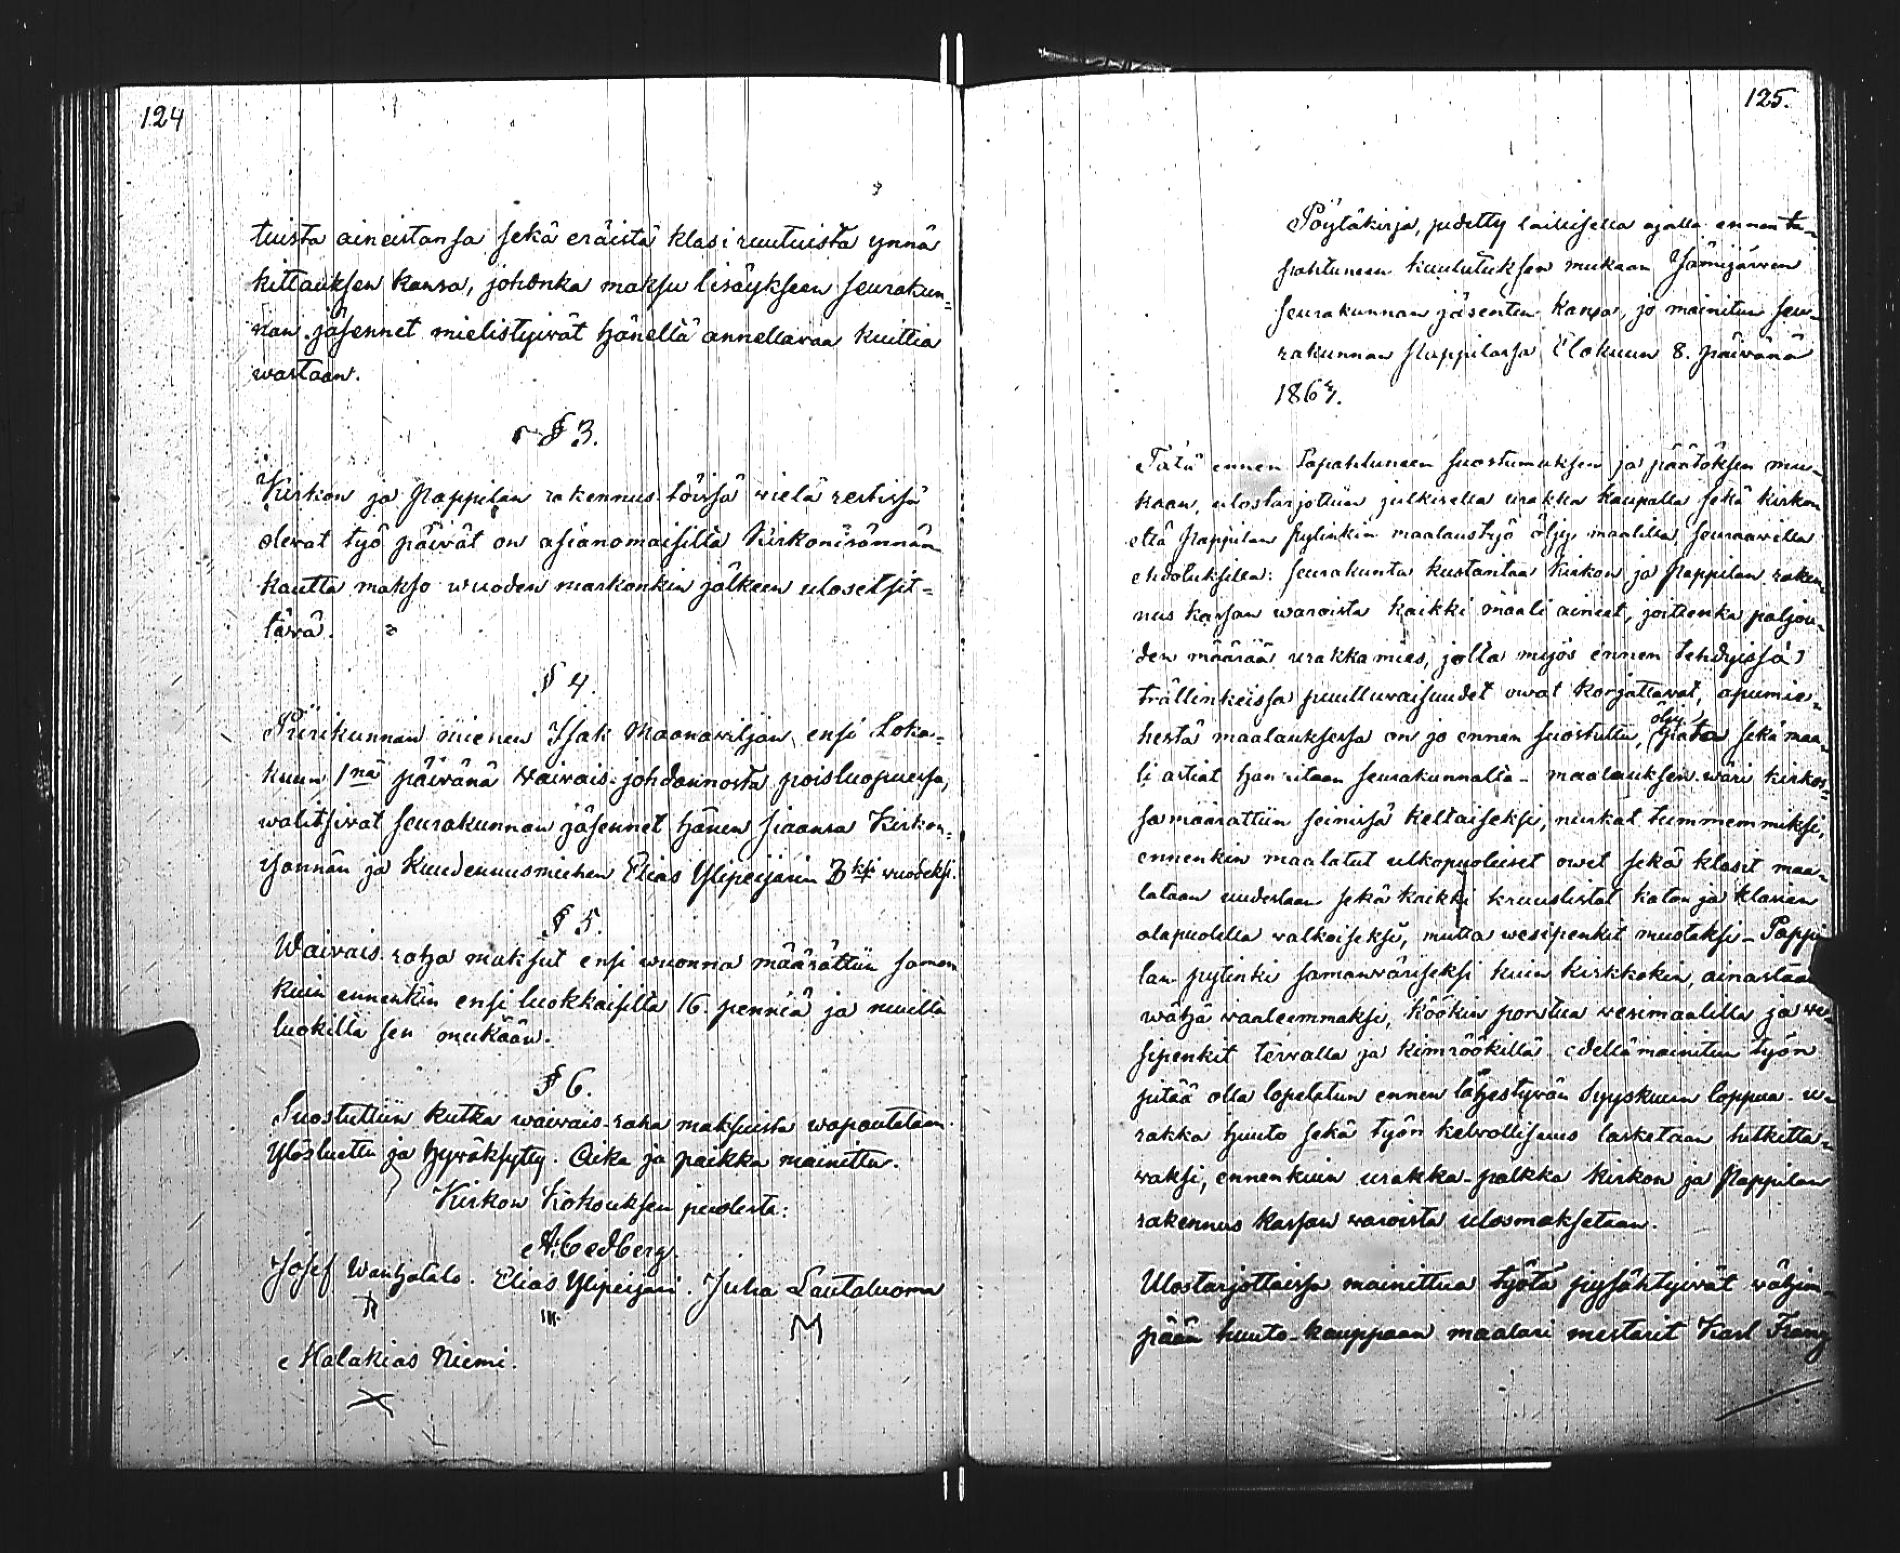 124
tuista aineistansa sekä eräistä klasi ruutuista ynnä
kittauksen kansa, johonka maksu lisäykseen seurakun-
nan jäsennet mielistyivät häneltä annettavaa kuittia
wastaan.
§ 3.
Kirkon ja Pappilan rakennus töissä vielä restissä
olewat työ päivät on asianomaisilta Kirkonisännän
kautta makso wuoden markonkin jälkeen ulosetsit-
tävä.
§ 4.
Piirikunnan miehen Isak Maanaviljan ensi Loka-
kuun 1nä päivänä Waivais-johdannosta poisluopuessa,
walitsivat seurakunnan jäsennet hänen siaansa Kirkon-
isännän ja Kuudennusmiehen Elias Ylipeijarin 3ksi vuodeksi.
§ 5.
Waivais-raha maksut ensi wuonna määrättiin saman
kuin ennenkin ensi luokkaisilta 16. penniä ja muilta
luokilta sen mukään.
§ 6.
Suostuttiin kutka waivais-raha maksuista wapautetaan.
Ylösluettu ja hyväksytty. Aika ja paikka mainittu.
Kirkon Kokouksen puolesta:
A. Cedberg.
Josef Wanhatalo. Elias Ylipeijari. Juha Lautaluoma
Malakias Niemi.
125.
Pöytäkirja, pidetty laillisella ajalla ennen ta-
pahtuneen kuulutuksen mukaan Jämijärwen
seurakunnan jäsenten kansa, jo mainitun seu-
rakunnan Pappilassa Elokuun 8. päivänä
186
Tätä ennen tapahtuneen suostumuksen ja päätöksen mu-
kaan, ulostarjottiin julkisella urakka kaupalla sekä kirkon
että Pappilan pytinkin maalaustyö öljy maalilla, seuraavilla
ehdotuksilla: seurakunta kustantaa kirkon ja Pappilan raken-
nus kassan waroista kaikki maali aineet, joittenka paljou-
den määrää urakka mies, jolta myös ennen tehdyissä
trällinkeissä puuttuvaisuudet owat korjattavat, apumie-
hestä maalauksessa on jo ennen suostuttu, öljy pata sekä maa-
li astiat han ottaa seurakunnalta - maalauksen wäri kirkos-
sa määrättiin seinissä keltaiseksi, nurkat tummemmiksi,
ennenkin maalatut ulkopuoleiset owet sekä klasit maa-
lataan uudestaan sekä kaikki kruuslistat katon ja klasien
alapuolella valkoiseksi, mutta wesipenkit mustaksi - Pappi-
lan pytinki samanväriseksi kuin kirkkokin, ainastaan
wähä vaaleemmaksi, köökin porstua vesimaalilla ja ve-
sipenkit tervalla ja kimröökillä - edellämainitun työn
pitää olla lopetetun ennen lähestyvän Syyskuun loppua - u-
rakka huuto sekä työn kelvollisuus lasketaan tutkitta-
vaksi, ennenkuin urakka-palkka kirkon ja Pappilan
rakennus kassan varoista ulosmaksetaan.
Ulostarjottaissa mainittua työtä pysähtyivät wähim-
pään huuto-kauppaan maalari mestarit Karl Franz